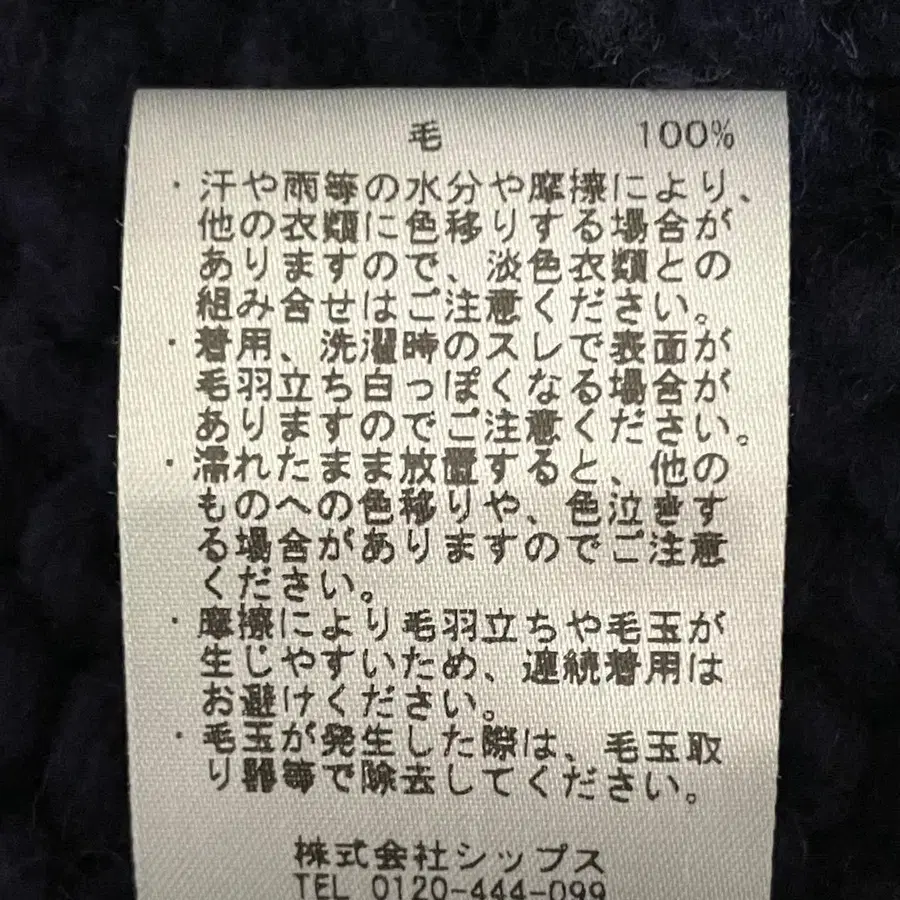 毛 100%
・汗や雨等の水分や摩擦により、
他の衣類に色移りする場合が
ありますので、淡色衣類との
組み合せはご注意ください。
・着用、洗濯時のスレで表面が
毛羽立ち白っぽくなる場合が
ありますのでご注意ください。
・濡れたまま放置すると、他の
ものへの色移りや、色泣きす
る場合がありますのでご注意
ください。
・摩擦により毛羽立ちや毛玉が
生じやすいため、連続着用は
お避けください。
・毛玉が発生した際は、毛玉取
り器等で除去してください。
株式会社シップス
TEL 0120-444-099